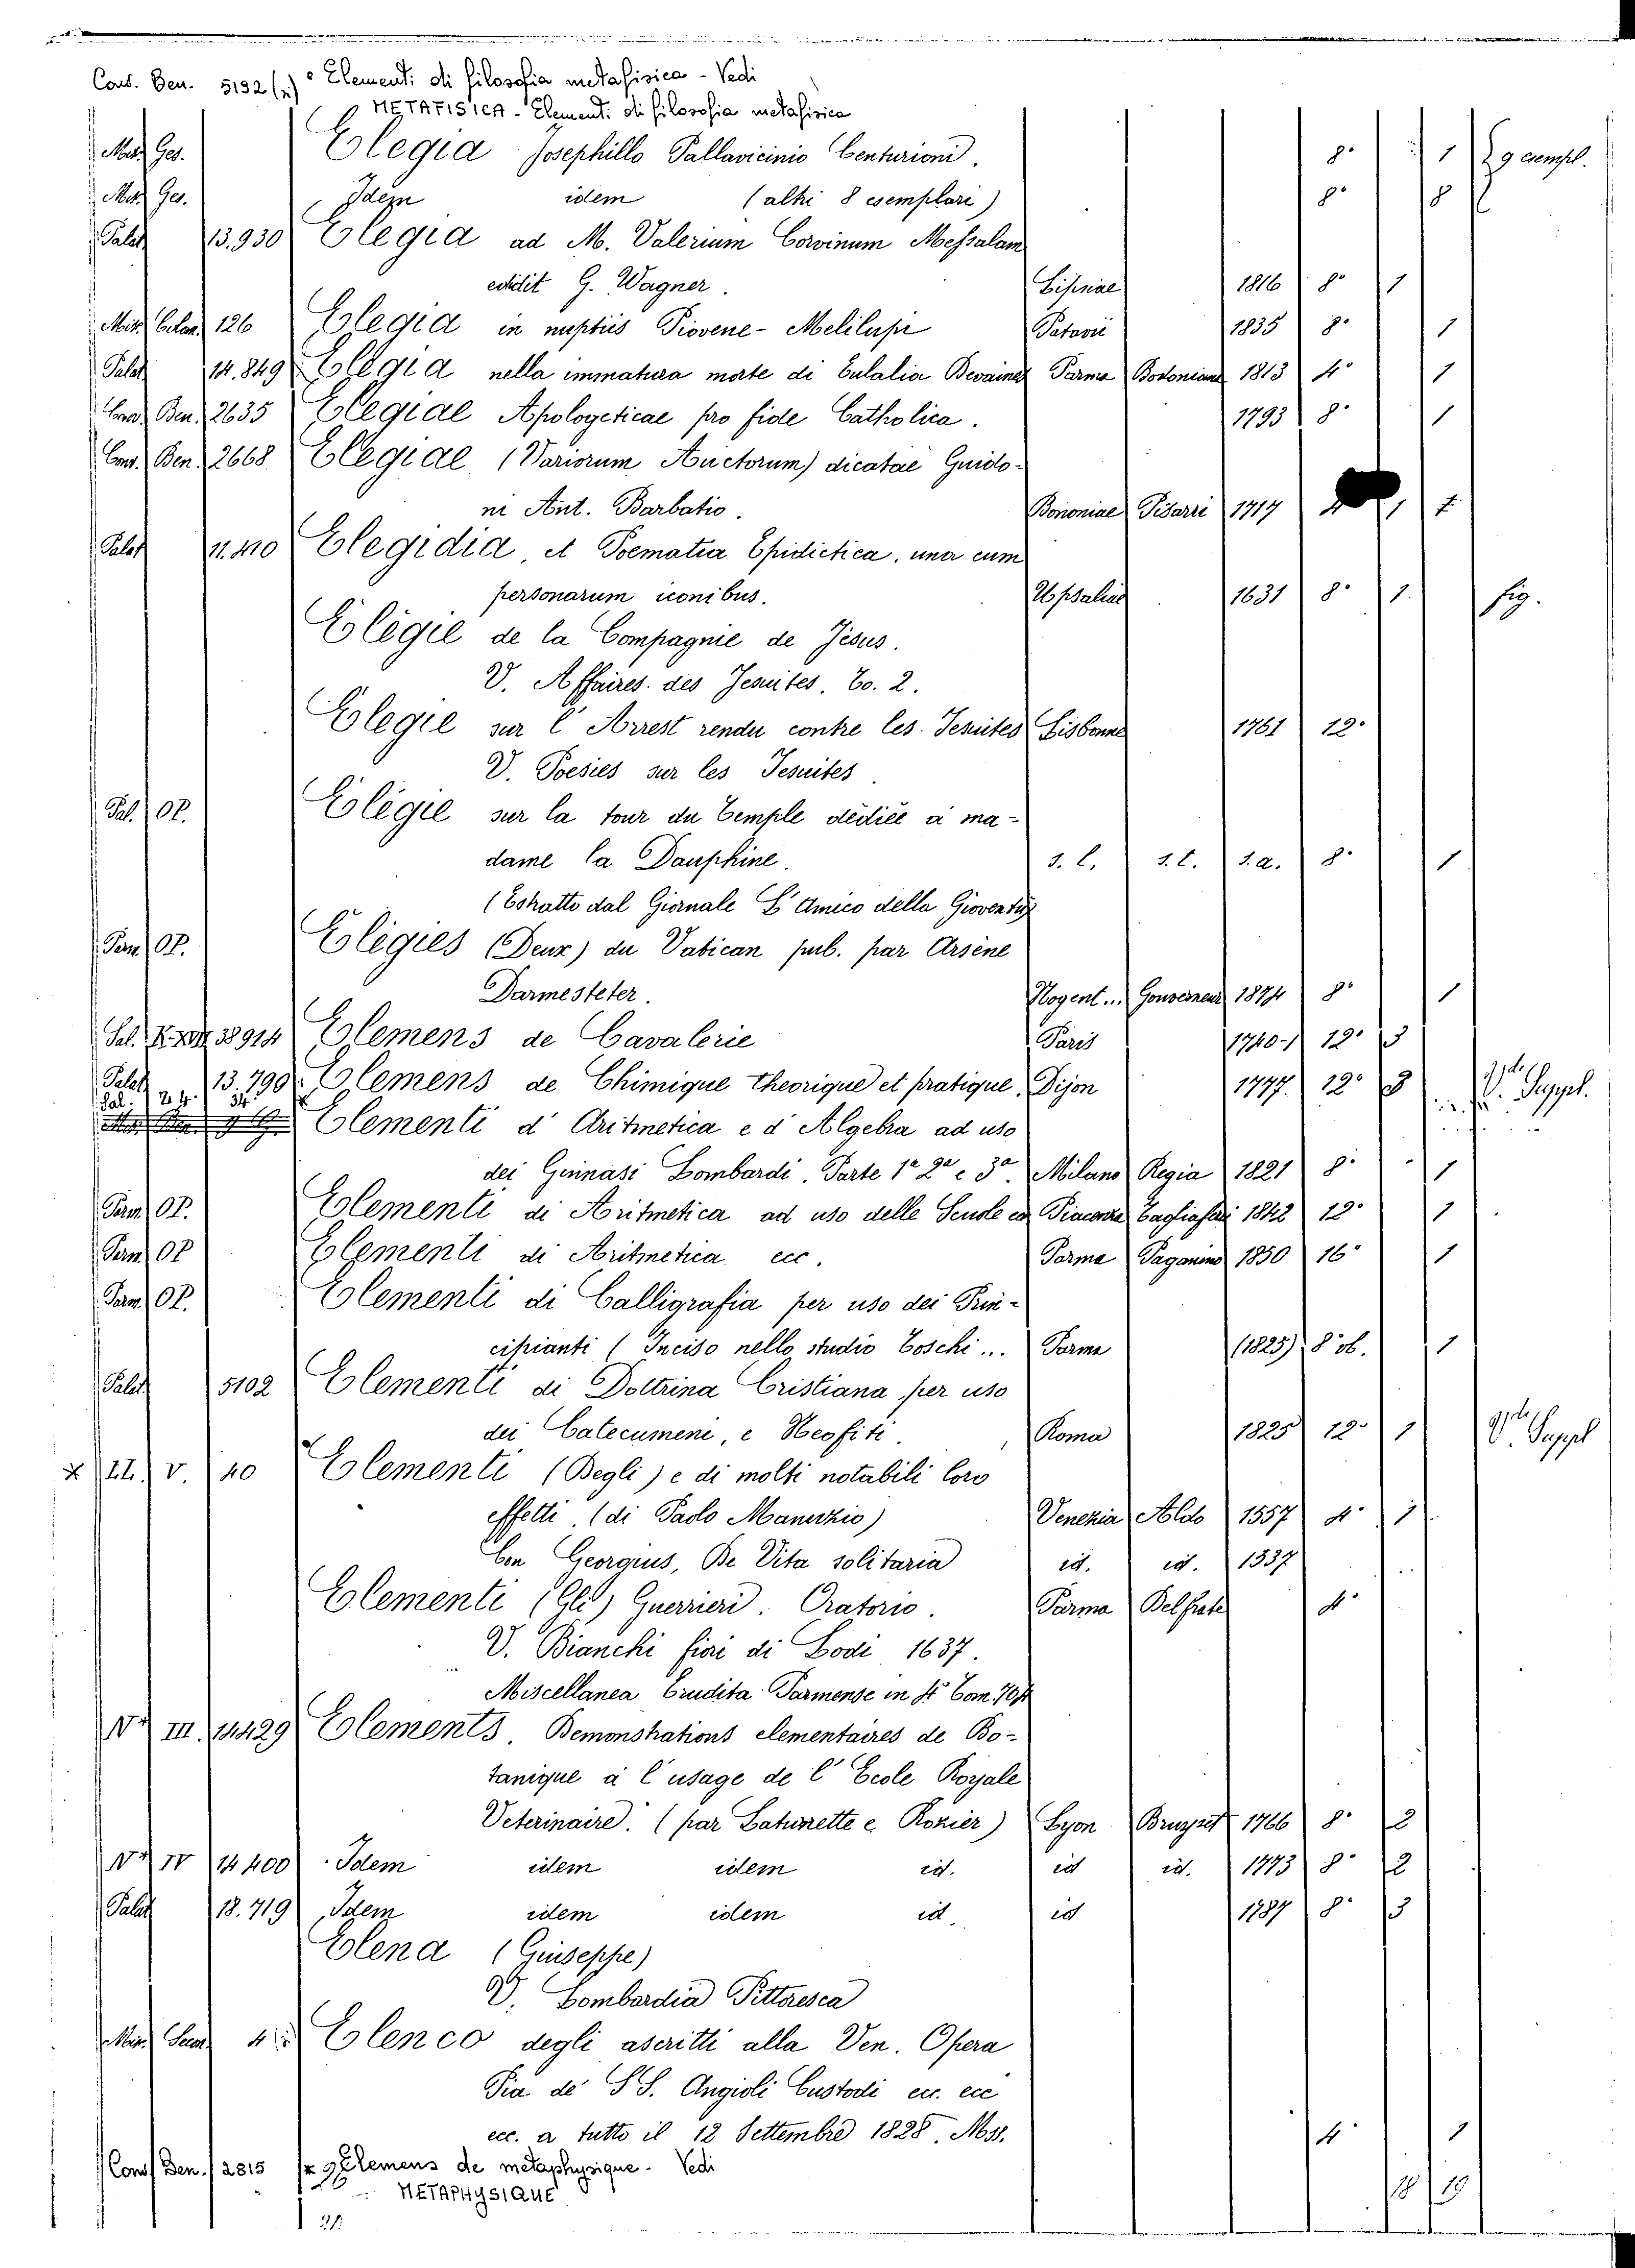 Cons. Ben. 5192 (2) Elementi di filosofia metafisica - Vedi
METAFISICA - Elementi di filosofia metafisica
Misc. Ges. Elegia Josephillo Pallavicinio Centurioni. 8° 1 9 esempl.
Misc. Ges. Idem idem (altri 8 esemplari) 8° 8
Palat. 13.930 Elegia ad M. Valerium Corvinum Messalam
edidit G. Wagner. Lipsiae 1816 8° 1
Misc. 126 Elegia in nuptiis Piovene - Melilupi Patavii 1835 8° 1
Palat. 14.849 Elegia nella immatura morte di Eulalia Parma Bodoniana 1813 4° 1
Cons. Ben. 2635 Elegiae Apologeticae pro fide Catholica. 1793 8° 1
Cons. Ben. 2668 Elegiae (Variorum Auctorum) dicatae Guido-
ni Ant. Barbatio. Bononiae Pisarri 1717
Palat. 11.410 Elegidia, et Poematia Epidictica, una cum
personarum iconibus. Upsaliae 1631 8° 1 fig.
Elégie de la Compagnie de Jésus.
V. Affaires des Jesuites. To. 2.
Elegie sur l' Arrest rendu contre les Jesuites Lisbonne 1761 12°
V. Poesies sur les Jesuites
Pal. OP. Elégie sur la tour du Temple dédiée à ma-
dame la Dauphine. s. l. s. t. s. a. 8° 1
(Estratto dal Giornale L'Amico della Gioventù)
Parm. OP. Elégies (Deux) du Vatican pub. par Arsène
Darmesteter. Nogent... Gouverneur 1874 8° 1
Sal. 38914 Elemens de Cavalerie Paris 1740-1 12° 3
Palat. 13.790 Elemens de Chimique theorique et pratique. Dijon 1777. 12° 3 V. Suppl.
Sal. 24. 34. Elementi d' Aritmetica e d' Algebra ad uso
dei Ginnasi Lombardi. Parte 1a 2a e 3a. Milano Regia 1821 8° 1
Parm. OP. Elementi di Aritmetica ad uso delle Scuole ec Piacenza Tagliaferri 1842 12° 1
Parm. OP Elementi di Aritmetica ecc. Parma Paganino 1850 16° 1
Parm. OP. Elementi di Calligrafia per uso dei Prin-
cipianti (Inciso nello studio Toschi... Parma (1825) 8° ob. 1
Palat. 5102 Elementi di Dottrina Cristiana per uso
dei Catecumeni, e Neofiti. Roma 1825 12° 1 V. Suppl
x LL. V. 40 Elementi (Degli) e di molti notabili loro
effetti. (di Paolo Manuzio) Venezia Aldo 1557 4° 1
Con Georgius, De Vita solitaria id. id. 1537
Elementi (Gli) Guerrieri. Oratorio. Parma Delfrate 4°
V. Bianchi fiori di Lodi 1637.
Miscellanea Erudita Parmense in 4° Tom. 70
III. 14429 Elements. Demonstrations elementaires de Bo-
tanique à l' usage de l' Ecole Royale
Veterinaire. (par Laturrette e Rozier) Lyon Bruyset 1766 8° 2
IV 14400 Idem idem idem id. id id. 1773 8° 2
Palat. 18.719 Idem idem idem id. id 1787 8° 3
Elena (Giuseppe)
V. Lombardia Pittoresca
Misc. 4 Elenco degli ascritti alla Ven. Opera
Pia de' SS. Angioli Custodi ecc. ecc
ecc. a tutto il 12 Settembre 1828. Mss. 4° 1
Cons. Ben. 2815 Elemens de metaphysique. Vedi
METAPHYSIQUE
18 19